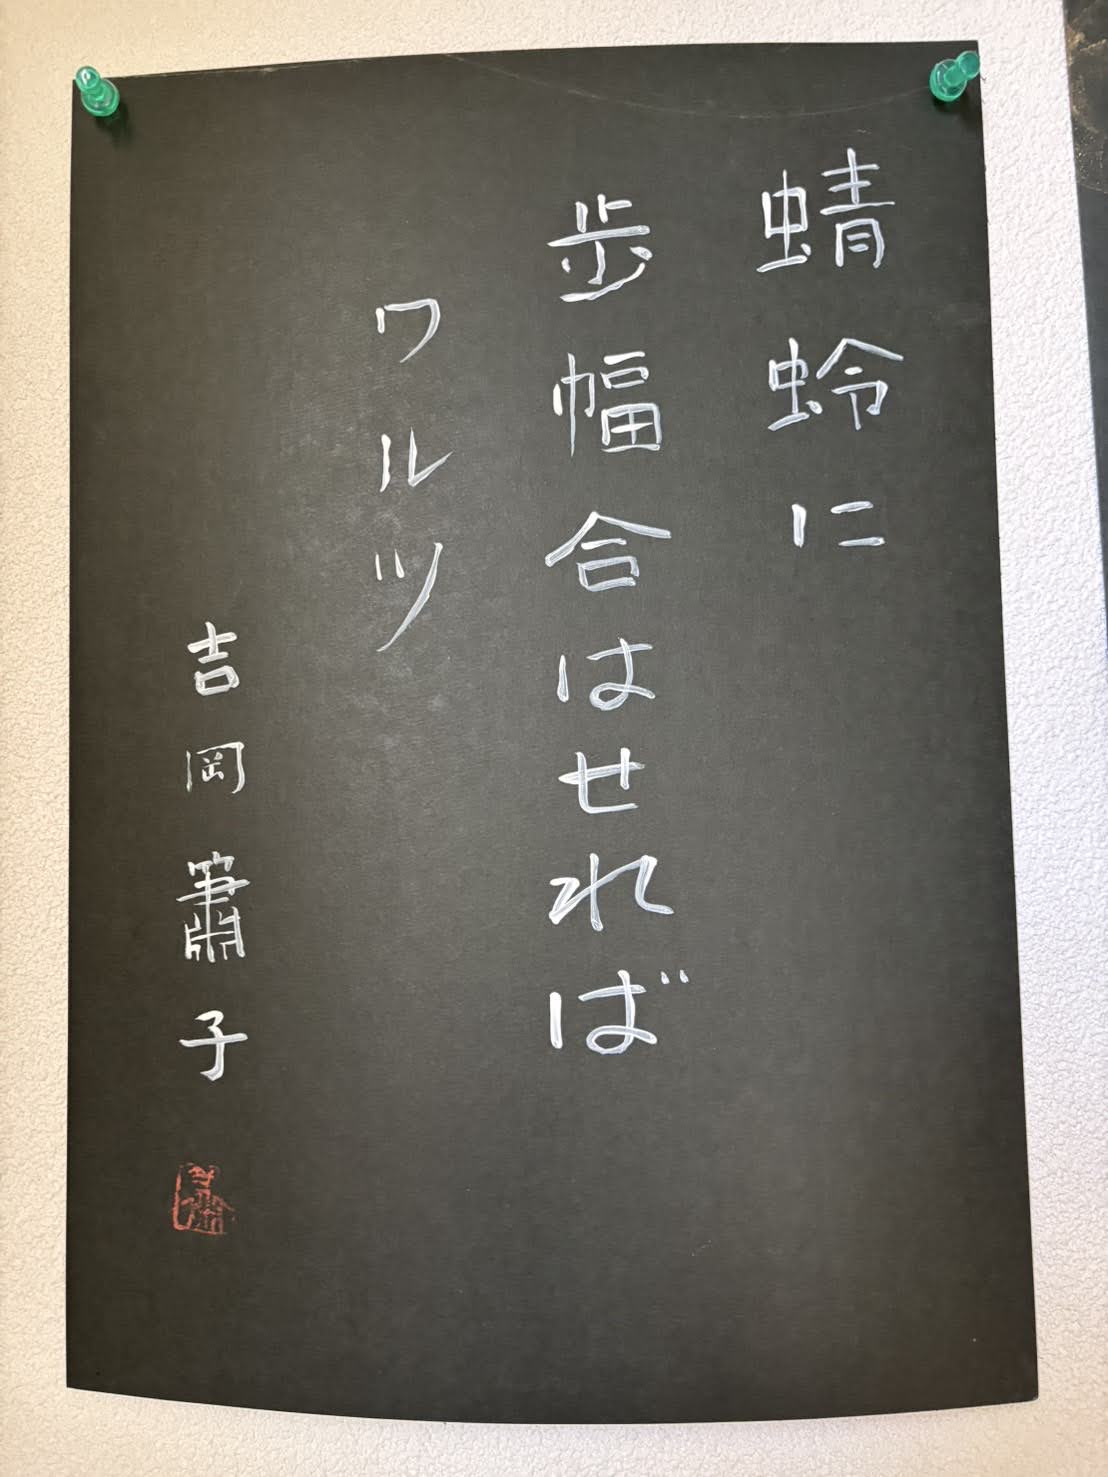 蜻蛉に
歩幅合はせれば
ワルツ
吉岡簫子